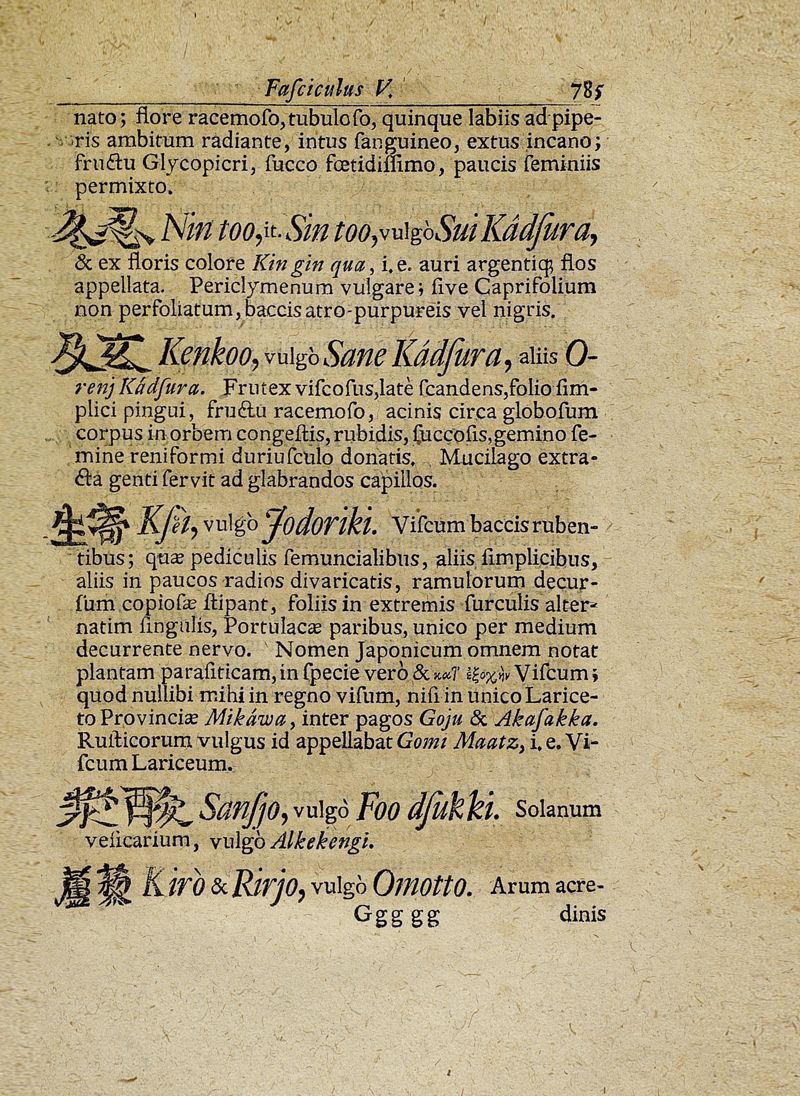 Faſciculus V. 785
nato; flore racemoſo, tubuloſo, quinque labiis ad pipe-
ris ambitum radiante, intus ſanguineo, extus incano;
fructu Glycopicri, ſucco fœtidiſſimo, paucis ſeminiis
permixto.
忍 Nin too, it. Sin too, vulgò Sui Kádſura,
& ex floris colore Kin gin qua, i. e. auri argentiq; flos
appellata. Periclymenum vulgare; ſive Caprifolium
non perfoliatum, baccis atro-purpureis vel nigris.
Kenkoo, vulgò Sane Kádſura, aliis O-
renj Kádſura. Frutex viſcoſus, latè ſcandens, folio ſim-
plici pingui, fructu racemoſo, acinis circa globoſum
corpus in orbem congeſtis, rubidis, ſuccoſis, gemino ſe-
mine reniformi duriuſculo donatis. Mucilago extra-
cta genti ſervit ad glabrandos capillos.
Kſei, vulgò Jodoriki. Viſcum baccis ruben-
tibus; quæ pediculis ſemuncialibus, aliis ſimplicibus,
aliis in paucos radios divaricatis, ramulorum decur-
ſum copioſæ ſtipant, foliis in extremis ſurculis alter-
natim ſingulis, Portulacæ paribus, unico per medium
decurrente nervo. Nomen Japonicum omnem notat
plantam paraſiticam, in ſpecie verò & κατ' ἐξοχὴν Viſcum;
quod nullibi mihi in regno viſum, niſi in unico Larice-
to Provinciæ Mikáwa, inter pagos Goju & Akaſakka.
Ruſticorum vulgus id appellabat Gomi Maatz, i. e. Vi-
ſcum Lariceum.
Sanſjo, vulgò Foo dſukki. Solanum
veſicarium, vulgò Alkekengi.
Kirò & Rirjo, vulgò Omotto. Arum acre-
Ggg gg dinis